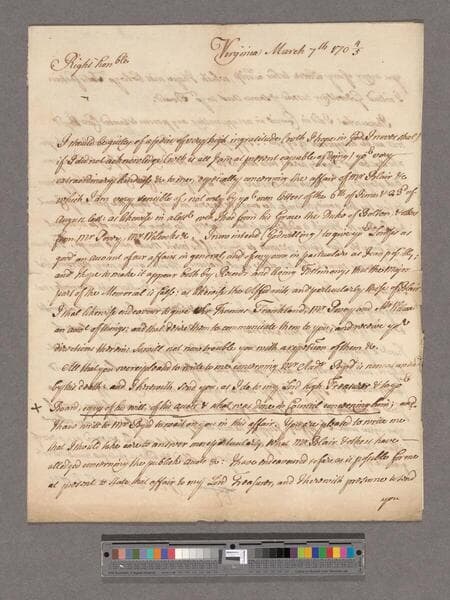 Virginia March 7th 170 4/5
Right honble
I should be guilty of a of very high ingratitude (wch I hope in God I never shal)
if I did not acknowledge (wch is all I am at present capable of doing) yor very
extraordinary kindness & honor, especially concerning the affair of Mr Blair &c
which I am very sensible of, not only by yor own letters of the 6th of June & 23d of
August last as likewise in a late from his Grace the Duke of Bolton & others
from Mr Perry, Mr &c, I now intend (God willing) to give yor as
good an account of our affairs in general and of my own in particular as I can possibly,
and I hope to make it appear both by Records and living Testimonys that the major
part of the Memorial is false: as likewise the Affidavits and particularly those of Blair
I shal likewise endeavour to give Sr Thomas Frankland, Mr Perry and Mr
an acct of things, and shal desire them to communicate them to you, and receive yor
directions therein, so wil not now trouble you with a repetition of them &c.
All that you were pleased to write to me concerning Mr Auditor Byrd is now
by his death and I herewith send you as I do to my Lord high Treasurer & to yor
Board, copy of his will, of his accots & what was done in Council concerning him; and
I have writ to Mr Byrd to wait on you in this affair. You are pleased to write me
that I should take care to answer more particularly, What Mr Blair & others have
alledged concerning the publick accts &c: I have endeavoured so far as is possible for me
at present to state that affair to my Lord Treasurer, and I herewith presume to send
you